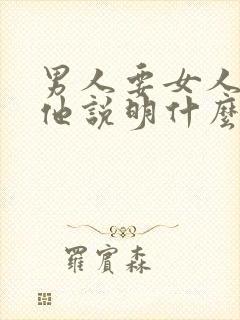 男人要女人
他說明什麼
羅賓森